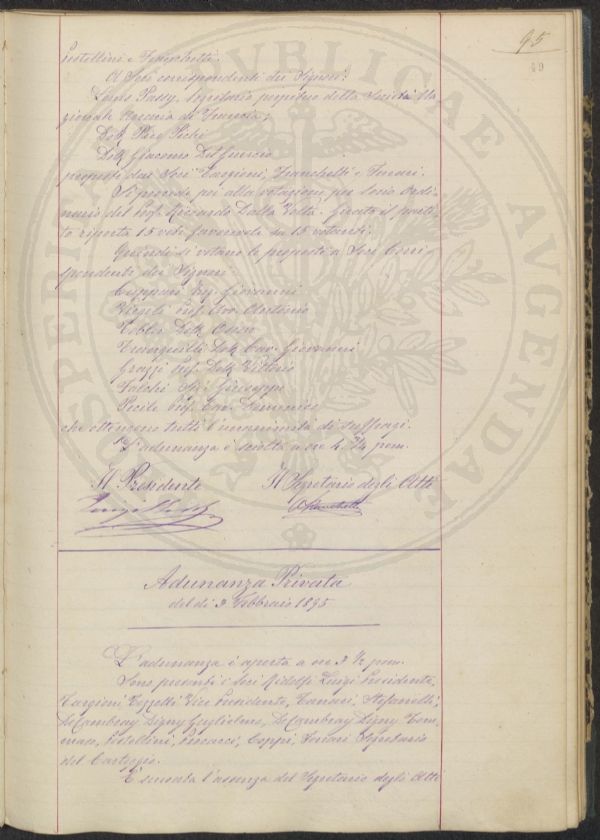 95
Pestellini e Franchetti.
A Soci corrispondenti dei Signori:
Louis Passy, Segretario perpetuo della Società Na
zionale di Francia;
Dott. Pichi
Dott. Giacomo Del Guercio
proposti dai Soci Targioni, Franchetti e Ferrari.
Si procede poi alla votazione per Socio Ordi-
nario del Prof. Riccardo Dalla Volta. Girato il parti-
to riporta 15 voti favorevoli su 15 votanti.
Quindi si votano le proposte a Soci Corri-
spondenti dei Signori
Cuppari Ing. Giovanni
Prof. Cav. Antonio
Dott. Oscar
Dott. Cav. Giovanni
Grazzi Prof. Dott. Vittorio
Giuseppe
Pecile Prof. Cav. Domenico
che ottennero tutti l'unanimità di suffragi.
L'adunanza è sciolta a ore 4 3/4 pom.
Il Presidente Il Segretario degli Atti
Franchetti
Adunanza Privata
del dì 3 Febbraio 1895
L'adunanza è aperta a ore 3 1/2 pom.
Sono presenti i Soci Ridolfi Luigi Presidente,
Targioni Tozzetti Vice Presidente, Tanari, Stefanelli,
De Cambray Digny Guglielmo, De Cambray Digny Tom-
maso, Pestellini, Coppi, Ferrari Segretario
del Carteggio.
È scusata l'assenza del Segretario degli Atti
VBLICAE
AVGENDAE
PROSPERITATI